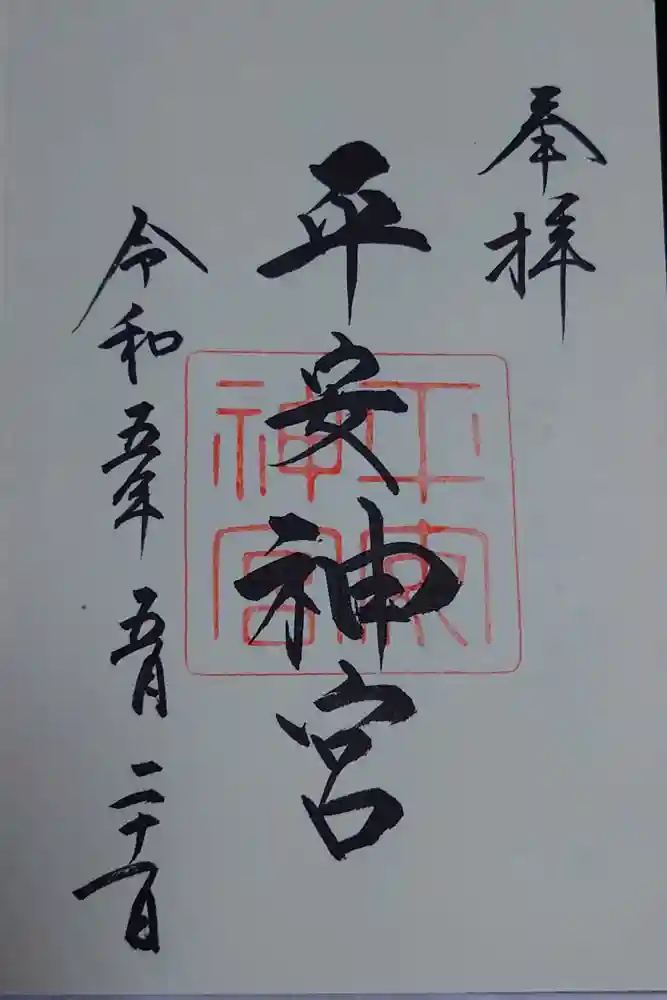 奉拝
平安神宮
平安神宮
令和五年 五月 二十一日